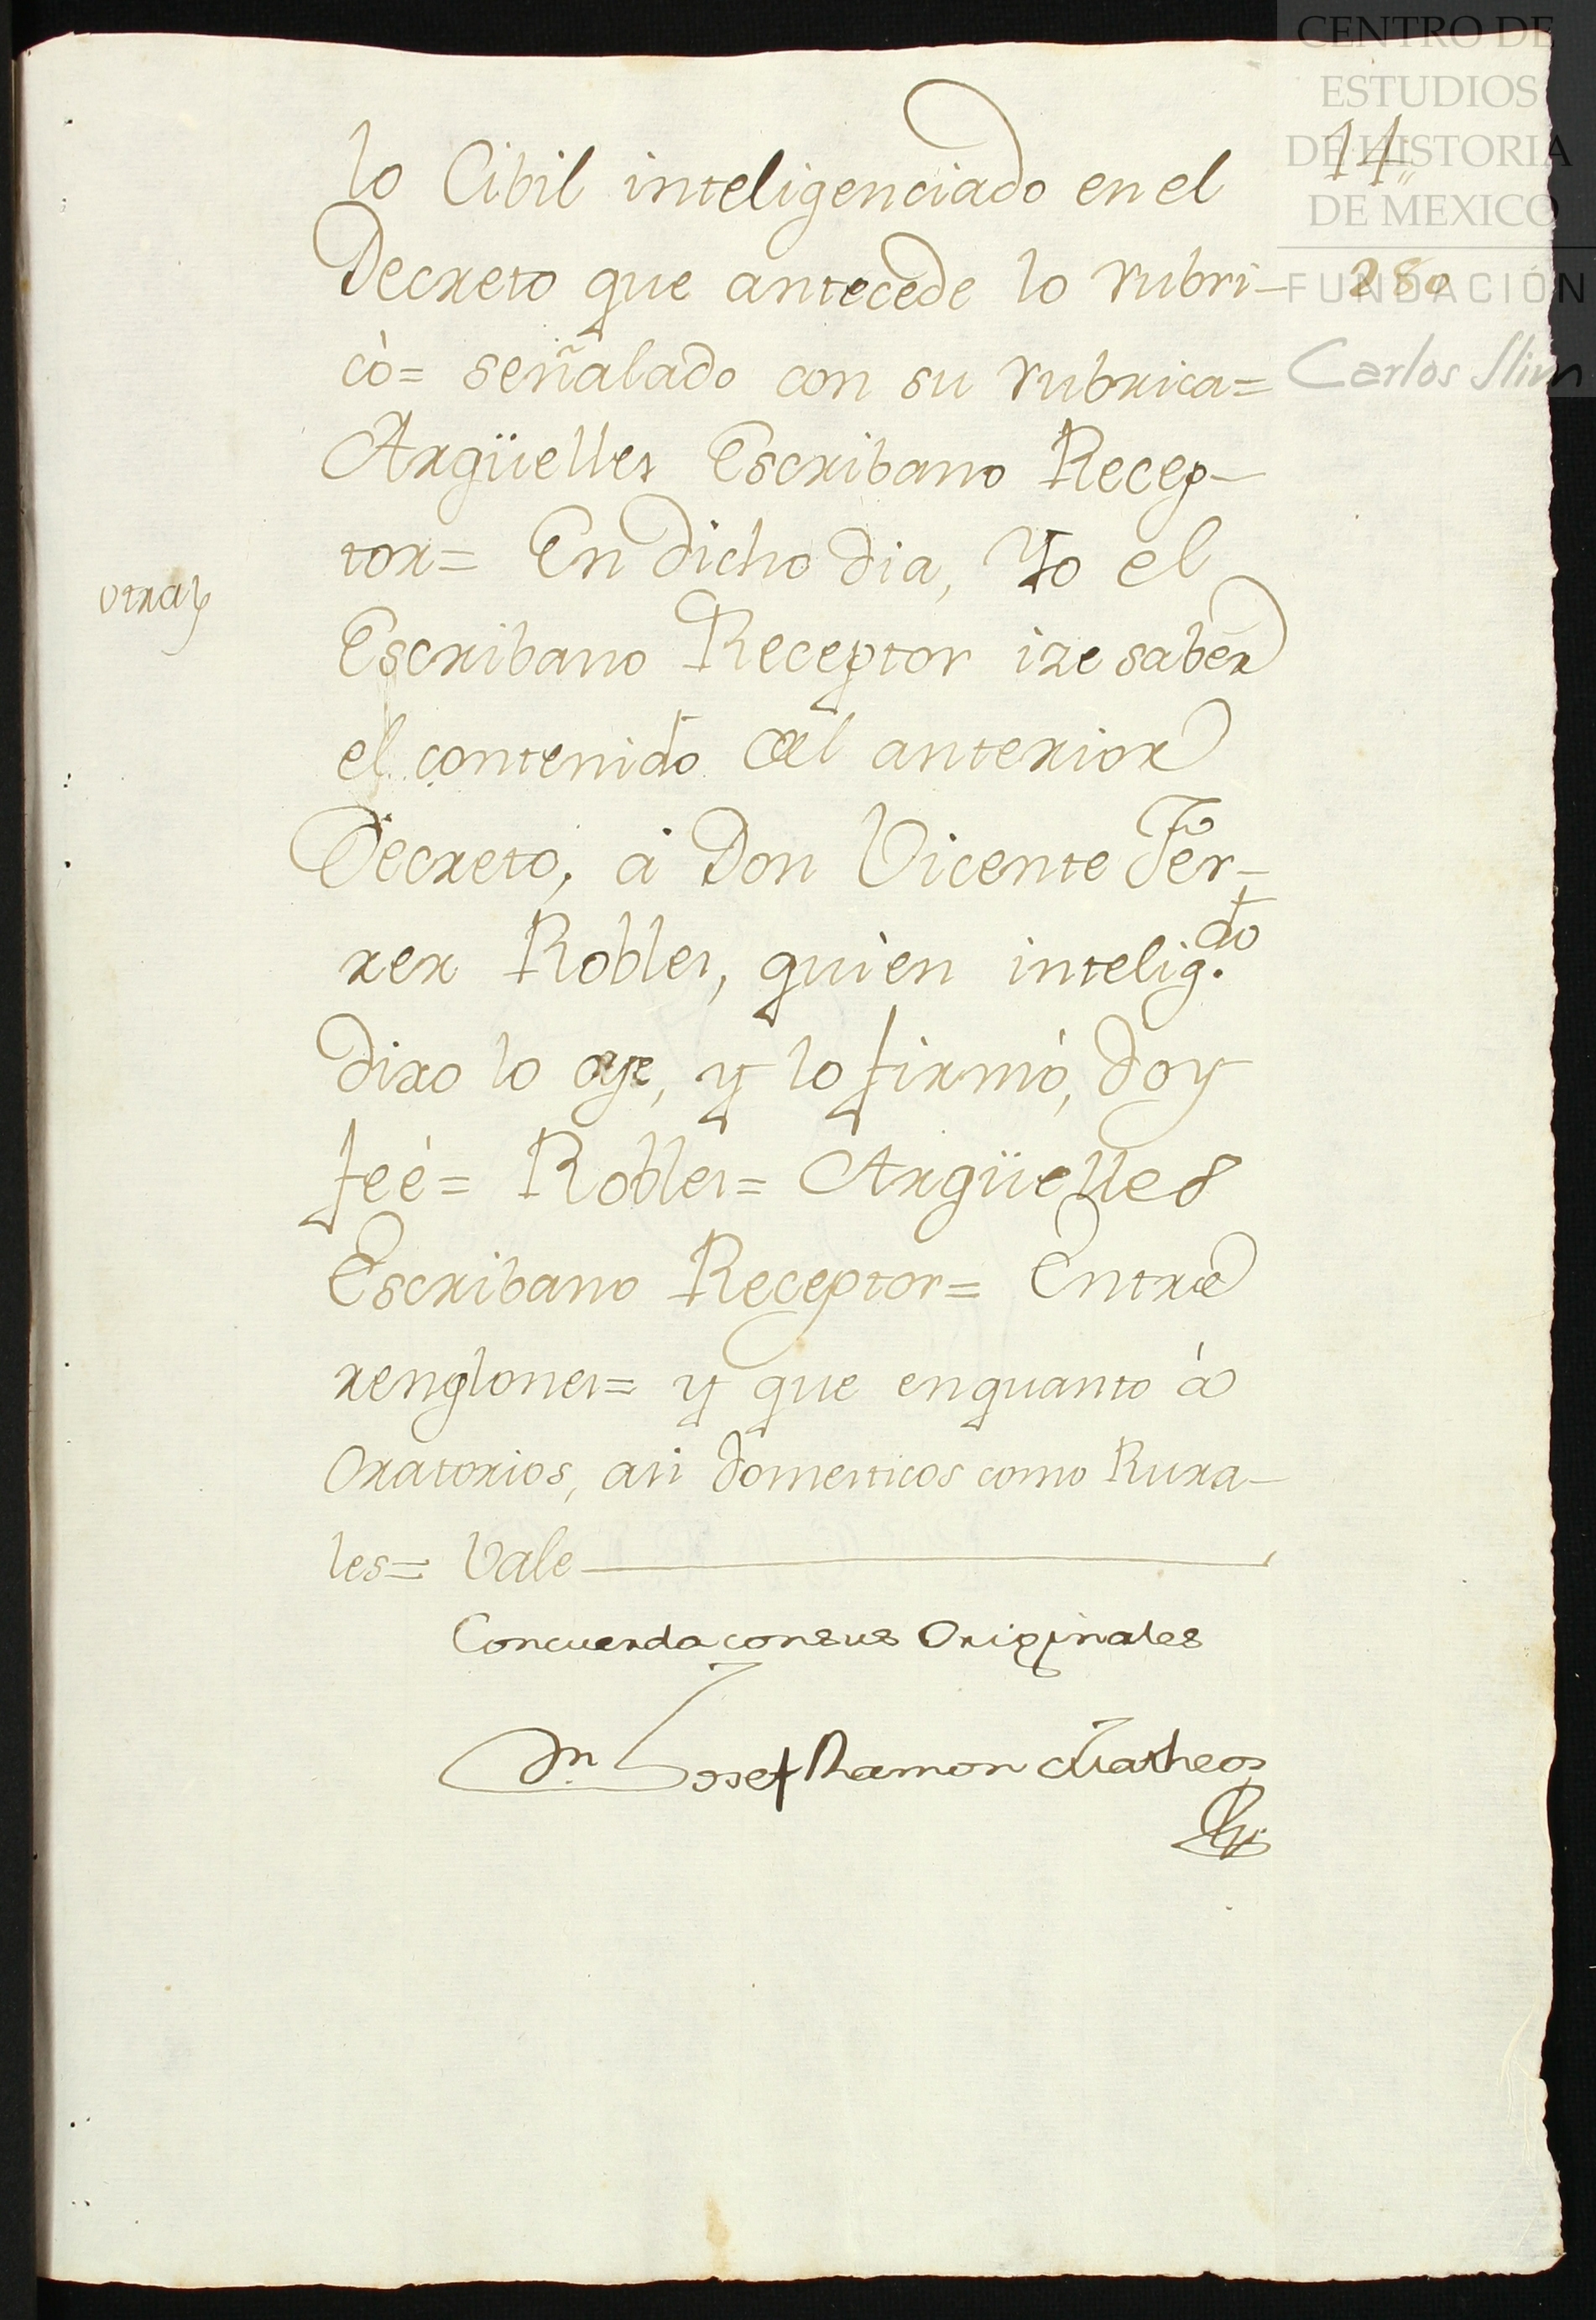 CENTRO DE
ESTUDIOS
DE HISTORIA
DE MEXICO
FUNDACIÓN
Carlos Slim
14
280
lo Cibil inteligenciado en el
Decreto que antecede lo rubri-
cò= señalado con su rubrica=
Argüelles Escribano Recep-
tor= En dicho dia, Yo el
otra
Escribano Receptor ize saber
el contenido del anterior
Decreto, à Don Vicente Fer-
rer Robles, quien intelig.do
dixo lo oye, y lo firmò, doy
feé= Robles= Argüelles
Escribano Receptor= Entre
renglones= y que enquanto à
Oratorios, asi domesticos como Rura-
les= Vale
Concuerda con sus Originales
Dn. Josef Ramon Matheos